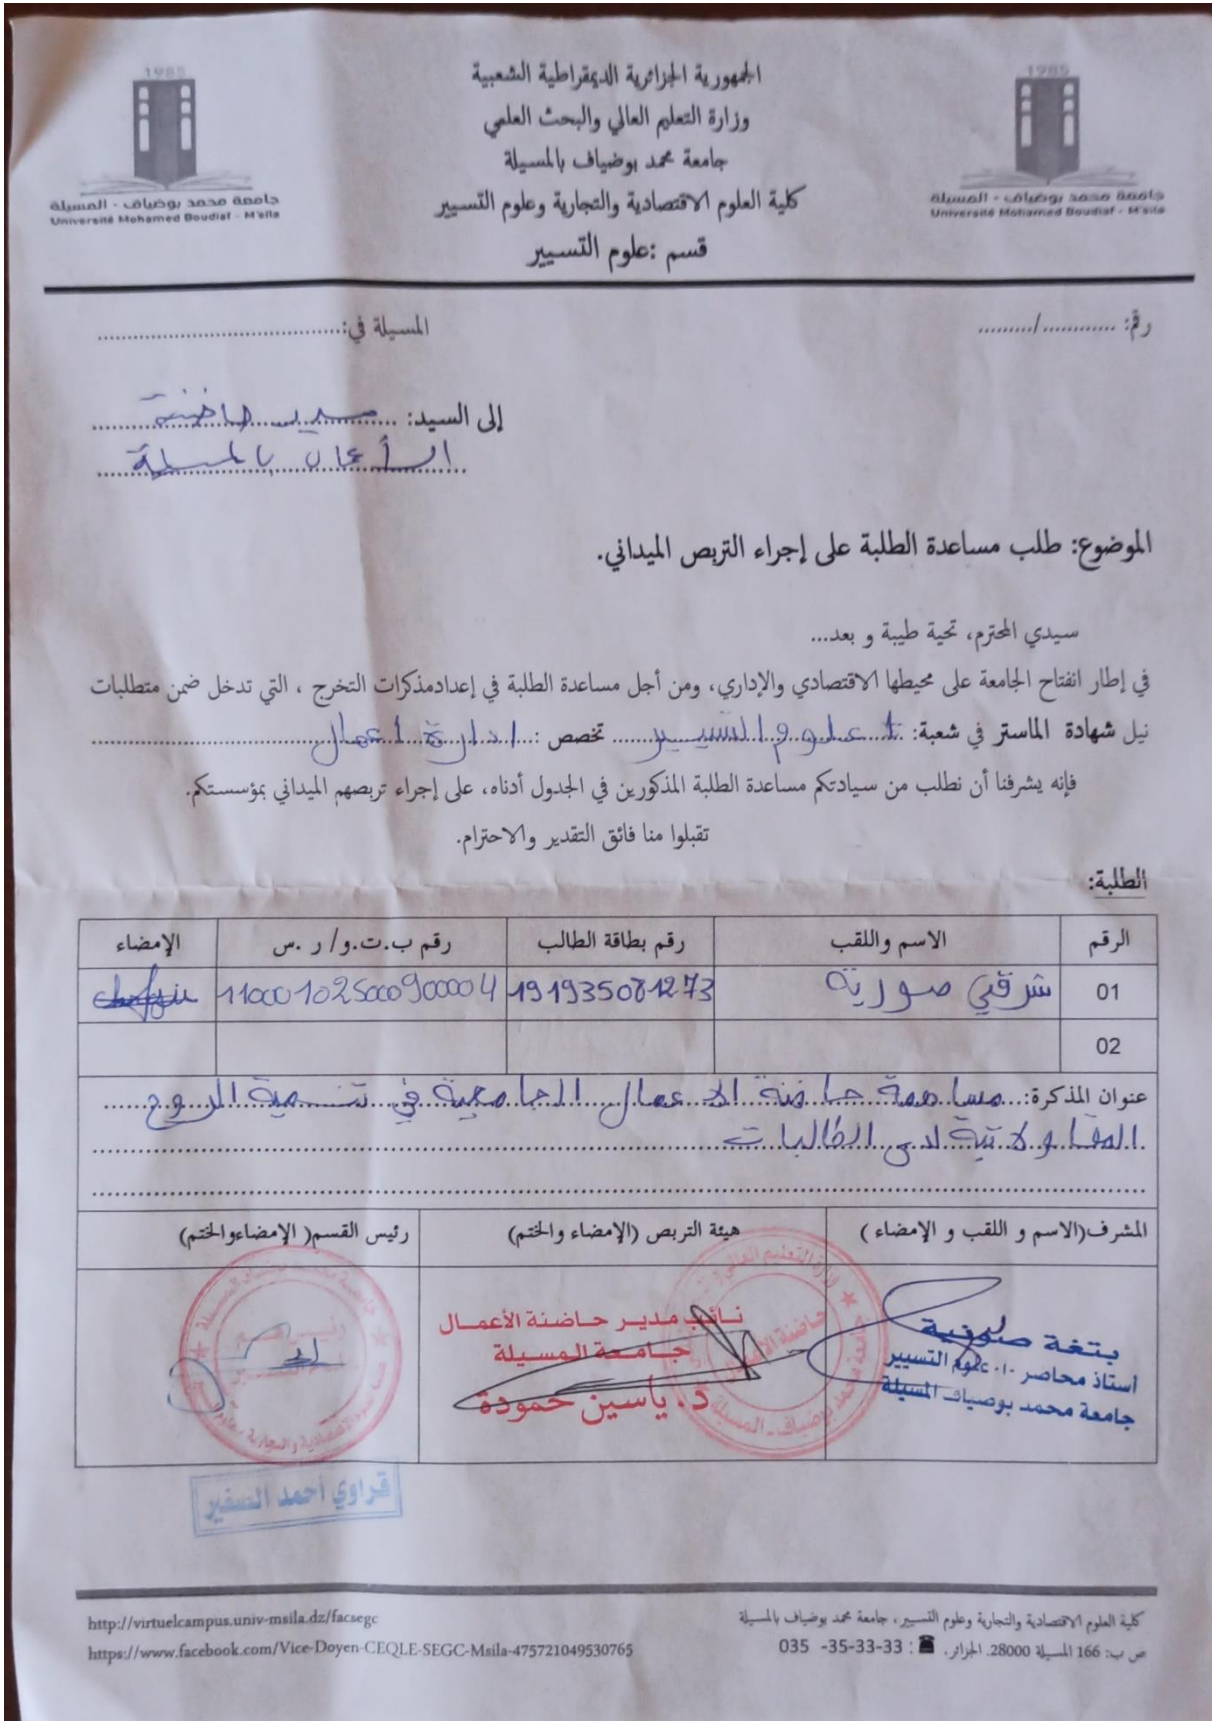 الجمهورية الجزائرية الديمقراطية الشعبية
وزارة التعليم العالي والبحث العلمي
جامعة محمد بوضياف بالمسيلة
كلية العلوم الاقتصادية والتجارية وعلوم التسيير
قسم :علوم التسيير
1985
جامعة محمد بوضياف - المسيلة
Université Mohamed Boudiaf - M'sila
1985
جامعة محمد بوضياف - المسيلة
Université Mohamed Boudiaf - M'sila
رقم: ............/.........
المسيلة في:....................................
إلى السيد: مدير حاضنة
الأعمال بالمسيلة
الموضوع: طلب مساعدة الطلبة على إجراء التربص الميداني.
سيدي المحترم، تحية طيبة و بعد...
في إطار انفتاح الجامعة على محيطها الاقتصادي والإداري، ومن أجل مساعدة الطلبة في إعدادمذكرات التخرج ، التي تدخل ضمن متطلبات
نيل شهادة الماستر في شعبة: علوم التسيير تخصص : ادارة اعمال
فإنه يشرفنا أن نطلب من سيادتكم مساعدة الطلبة المذكورين في الجدول أدناه، على إجراء تربصهم الميداني بمؤسستكم.
تقبلوا منا فائق التقدير والاحترام.
الطلبة:
الرقم الاسم واللقب رقم بطاقة الطالب رقم ب.ت.و/ ر .س الإمضاء
01 شرقي صورية 191935081273 110001025000900004
02
عنوان المذكرة: مساهمة حاضنة الاعمال الجامعية في تنمية الروح
المقاولاتية لدى الطالبات
المشرف(الاسم و اللقب و الإمضاء ) هيئة التربص (الإمضاء والختم) رئيس القسم( الإمضاءوالختم)
بتغة صونية
أستاذ محاضر -أ- علوم التسيير
جامعة محمد بوضياف المسيلة
نائب مدير حاضنة الأعمال
جامعة المسيلة
د. ياسين حمودة
حاضنة الأعمال
جامعة محمد بوضياف - المسيلة
قراوي أحمد الصغير
كلية العلوم الاقتصادية والتجارية وعلوم التسيير ، جامعة محمد بوضياف بالمسيلة
ص ب: 166 المسيلة 28000. الجزائر. ☎ : 33-33-35- 035
http://virtuelcampus.univ-msila.dz/facsegc
https://www.facebook.com/Vice-Doyen-CEQLE-SEGC-Msila-475721049530765